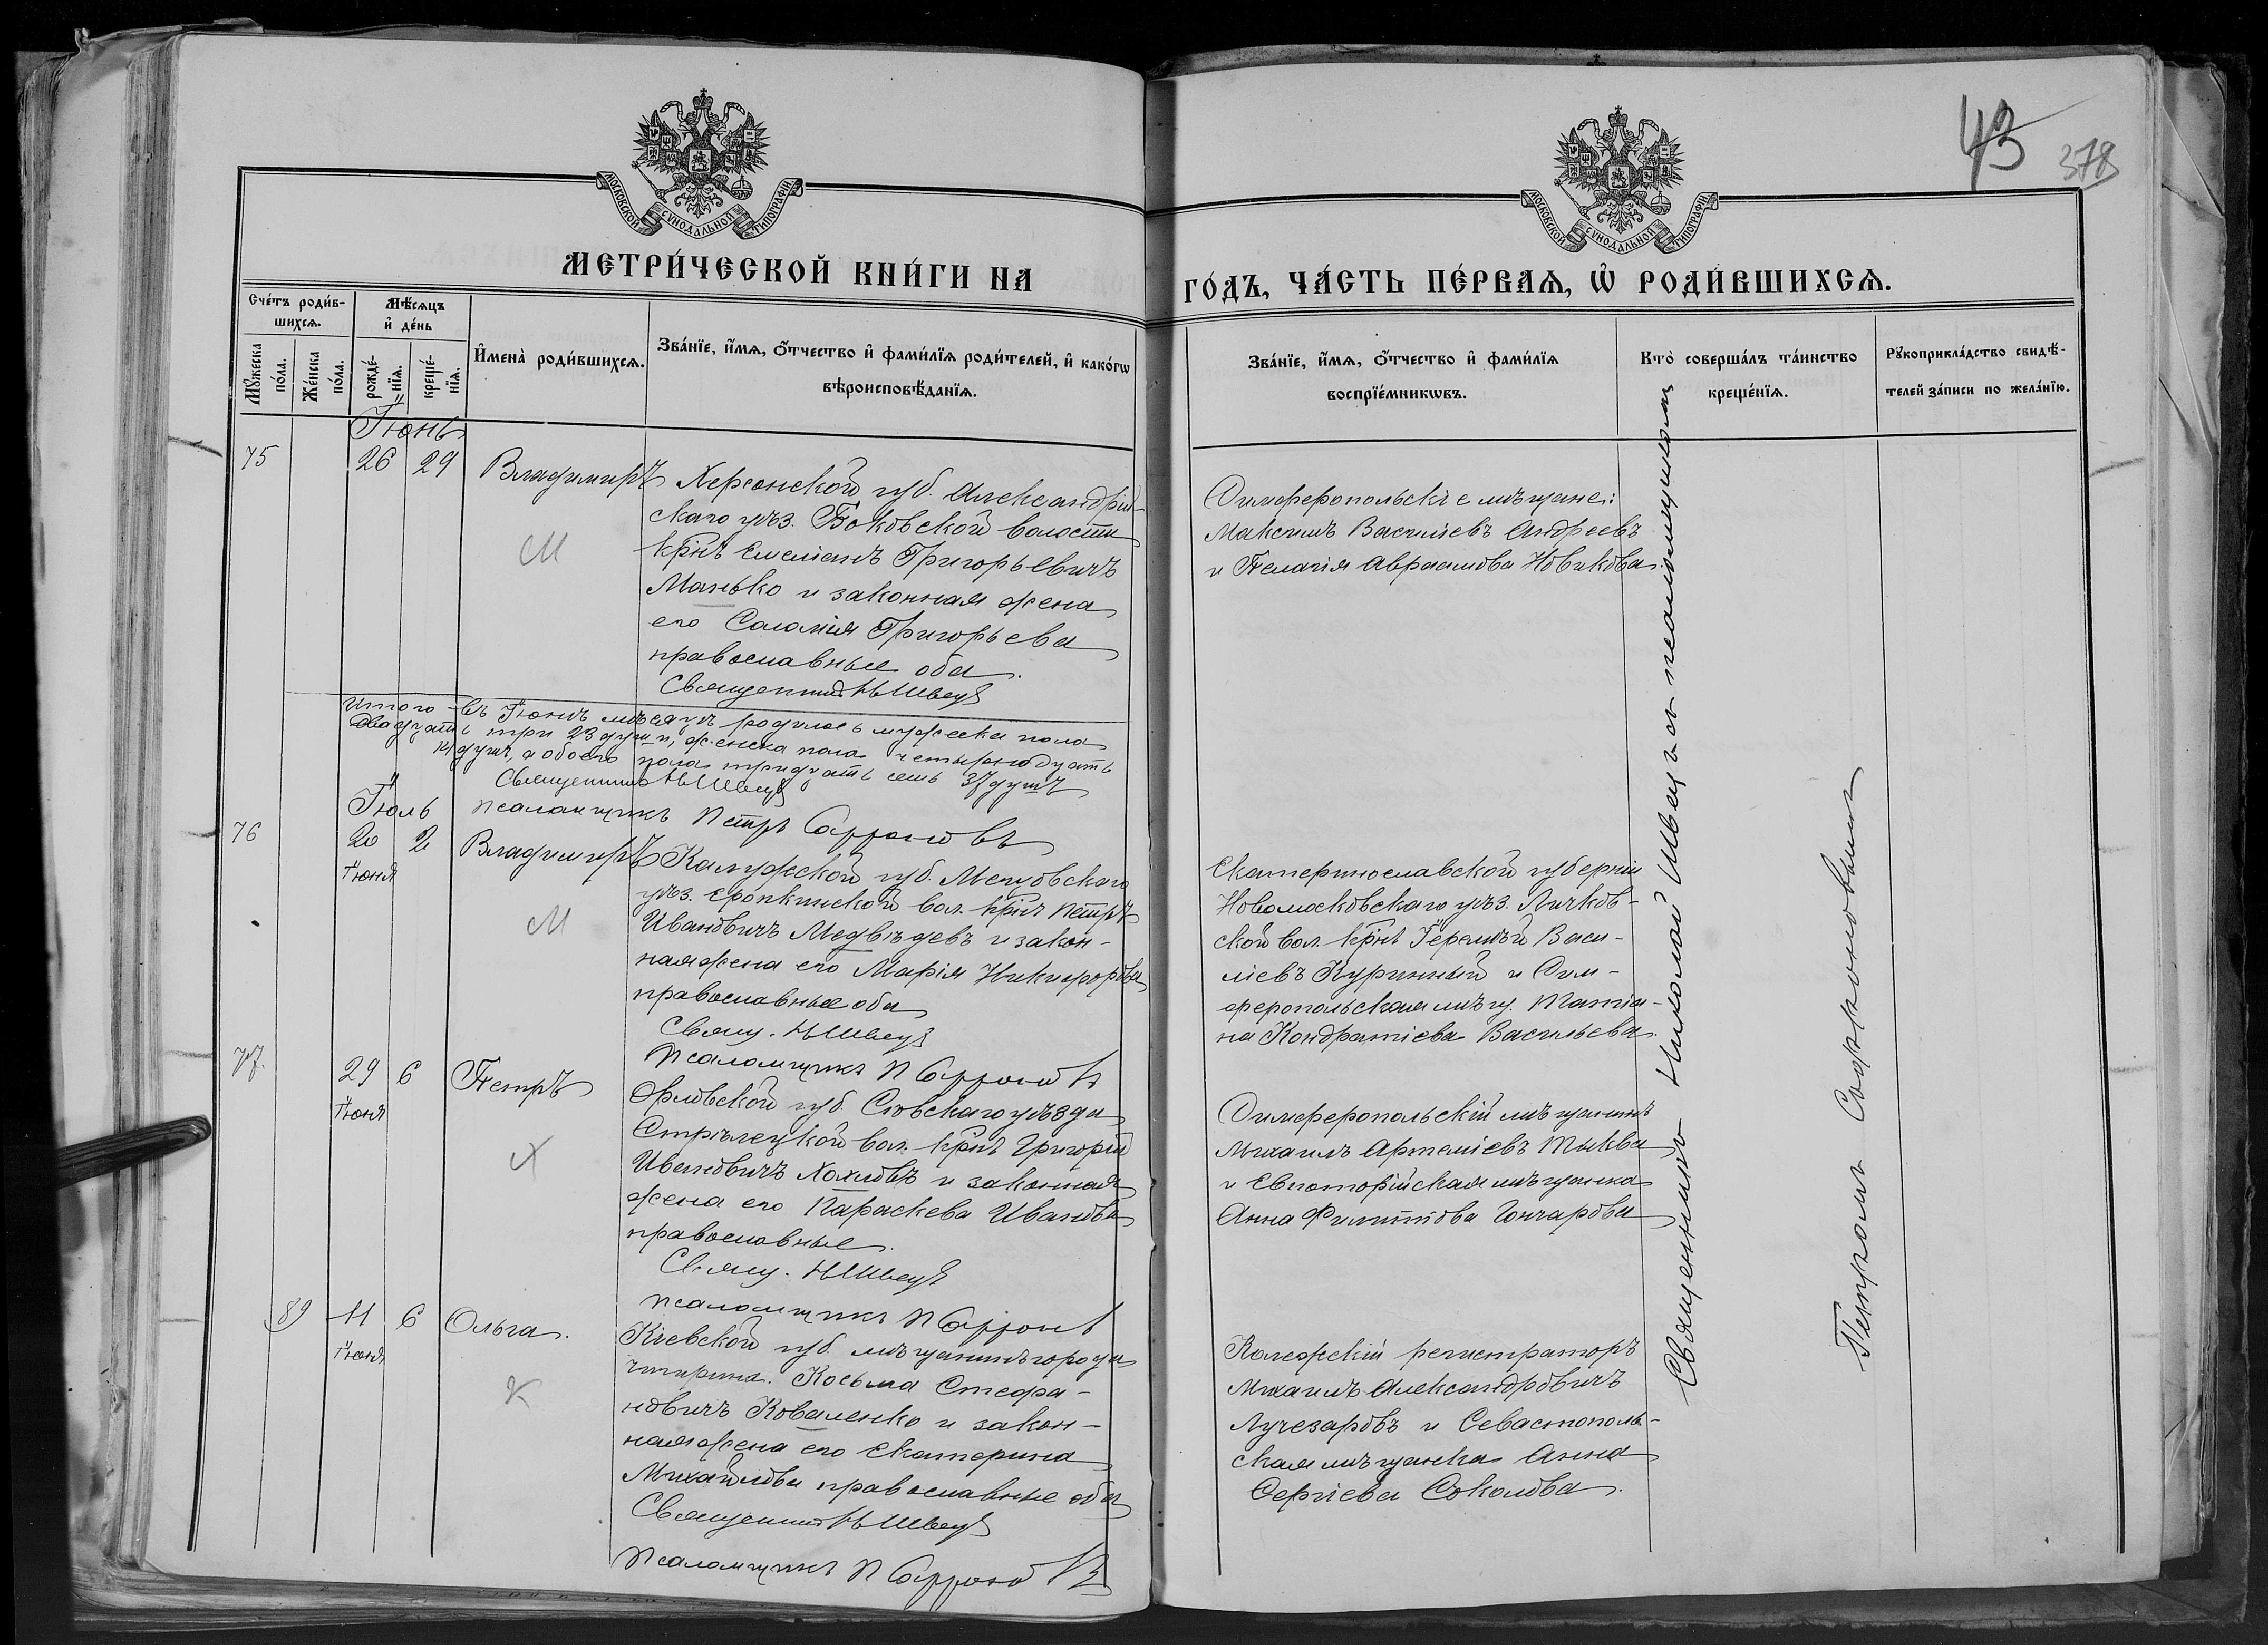 43
378
МОСКОВСКОЙ СѴНОДАЛЬНОЙ ТИПОГРАФІИ
МОСКОВСКОЙ СѴНОДАЛЬНОЙ ТИПОГРАФІИ
МЕТРИ́ЧЕСКОЙ КНИ́ГИ НА
ГО́ДЪ, ЧА́СТЬ ПЕ́РВАѦ, Ѡ҆ РОДИ́ВШИХСѦ.
Сче́тъ роди́в-
шихсѧ.
Мꙋ́жеска по́ла.
Же́нска по́ла.
Мѣ́сѧцъ
и҆ де́нь
рожде́-нїѧ.
креще́-нїѧ.
И҆мена̀ роди́вшихсѧ.
Зва́нїе, и҆́мѧ, ѻ҆́тчество и҆ фами́лїѧ роди́телей, и҆ како́гѡ
вѣроисповѣ́данїѧ.
Зва́нїе, и҆́мѧ, ѻ҆́тчество и҆ фами́лїѧ
воспрїе́мникѡвъ.
Кто̀ соверша́лъ та́инство
креще́нїѧ.
Рꙋкоприкла́дство свидѣ́-
телей за́писи по жела́нїю.
Іюнь
75 26 29 Владимиръ
М
Херсонской губ. Александрій-
скаго уѣз. Боковской волости
крнъ Емеліанъ Григорьевичъ
Манько и законная жена
его Саломія Григорьева
православные оба.
Священникъ Н Швецъ
Симферопольскіе мѣщане:
Максимъ Василіевъ Андреевъ
и Пелагія Авраамова Новикова.
Итого въ Іюнѣ мѣсяцѣ родилось мужеска пола
двадцать три 23 души, женска пола четырнадцать
14 душъ, а обоего пола тридцать семь 37 душъ
Священникъ Н Швецъ
псаломщикъ Петръ Сафроновъ
Іюль
76 20 2 Владимиръ
Іюня
М
Калужской губ. Мещовскаго
уѣз. Еропкинской вол. крнъ Петръ
Ивановичъ Медвѣдевъ и закон-
ная жена его Марія Никифорова
православные оба
Свящ. Н Швецъ
Псаломщикъ П Сафроновъ
Екатеринославской губерніи
Новомосковскаго уѣз. Личков-
ской вол. крнъ Іеремѣй Васи-
ліевъ Куринный и Сим-
феропольская мѣщ. Татіа-
на Кондратіева Васильева.
77. 29 6 Петръ
Іюня
Х
Орловской губ. Сѣвскаго уѣзда
Стрѣлецкой вол. крнъ Григорій
Ивановичъ Хохловъ и законная
жена его Параскева Иванова
православные.
Свящ. Н Швецъ
псаломщикъ П Сафроновъ
Симферопольскій мѣщанинъ
Михаилъ Артеміевъ Тыква
и Евпаторійская мѣщанка
Анна Филиппова Гончарова
89 11 6 Ольга.
Іюня
К
Кіевской губ. мѣщанинъ города
Чигирина. Косьма Стефа-
новичъ Коваленко и закон-
ная жена его Екатерина
Михайлова православные оба
Священникъ Н Швецъ
Псаломщикъ П Сафроновъ
Колежскій регистраторъ
Михаилъ Александровичъ
Лучезаровъ и Севастополь-
ская мѣщанка Анна
Сергіева Соколова.
Священникъ Николай Швецъ съ псаломщикомъ
Петромъ Сафроновымъ